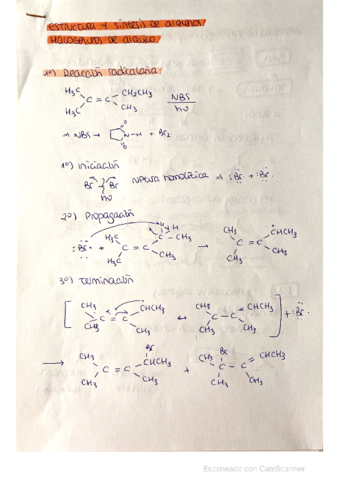 estructura y síntesis de alquenos
Halogenuros de alquilo
Reacción radicalaria
H3C
CH2CH3
C = C
H3C
CH3
NBS
hν
⇒ NBS →
O
N-H + Br2
O
1º) Iniciación
Br Br
ruptura homolítica ⇒ :Br· + Br·
hν
2º) Propagación
H H
:Br· +
H3C
C - CH3
C = C
H3C
CH3
→
CH3
CHCH3
C = C
CH3
CH3
3º) Terminación
CH3
CHCH3
C = C
CH3
CH3
↔
CH3
C - C
CHCH3
CH3
CH3
+ :Br·
→
CH3
Br
CHCH3
C = C
CH3
CH3
+
CH3
Br
C - C
=CHCH3
CH3
CH3
Escaneado con CamScanner